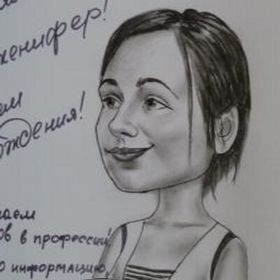 женифер!
ем
ждения!
аем
ов в профессии
о информацию